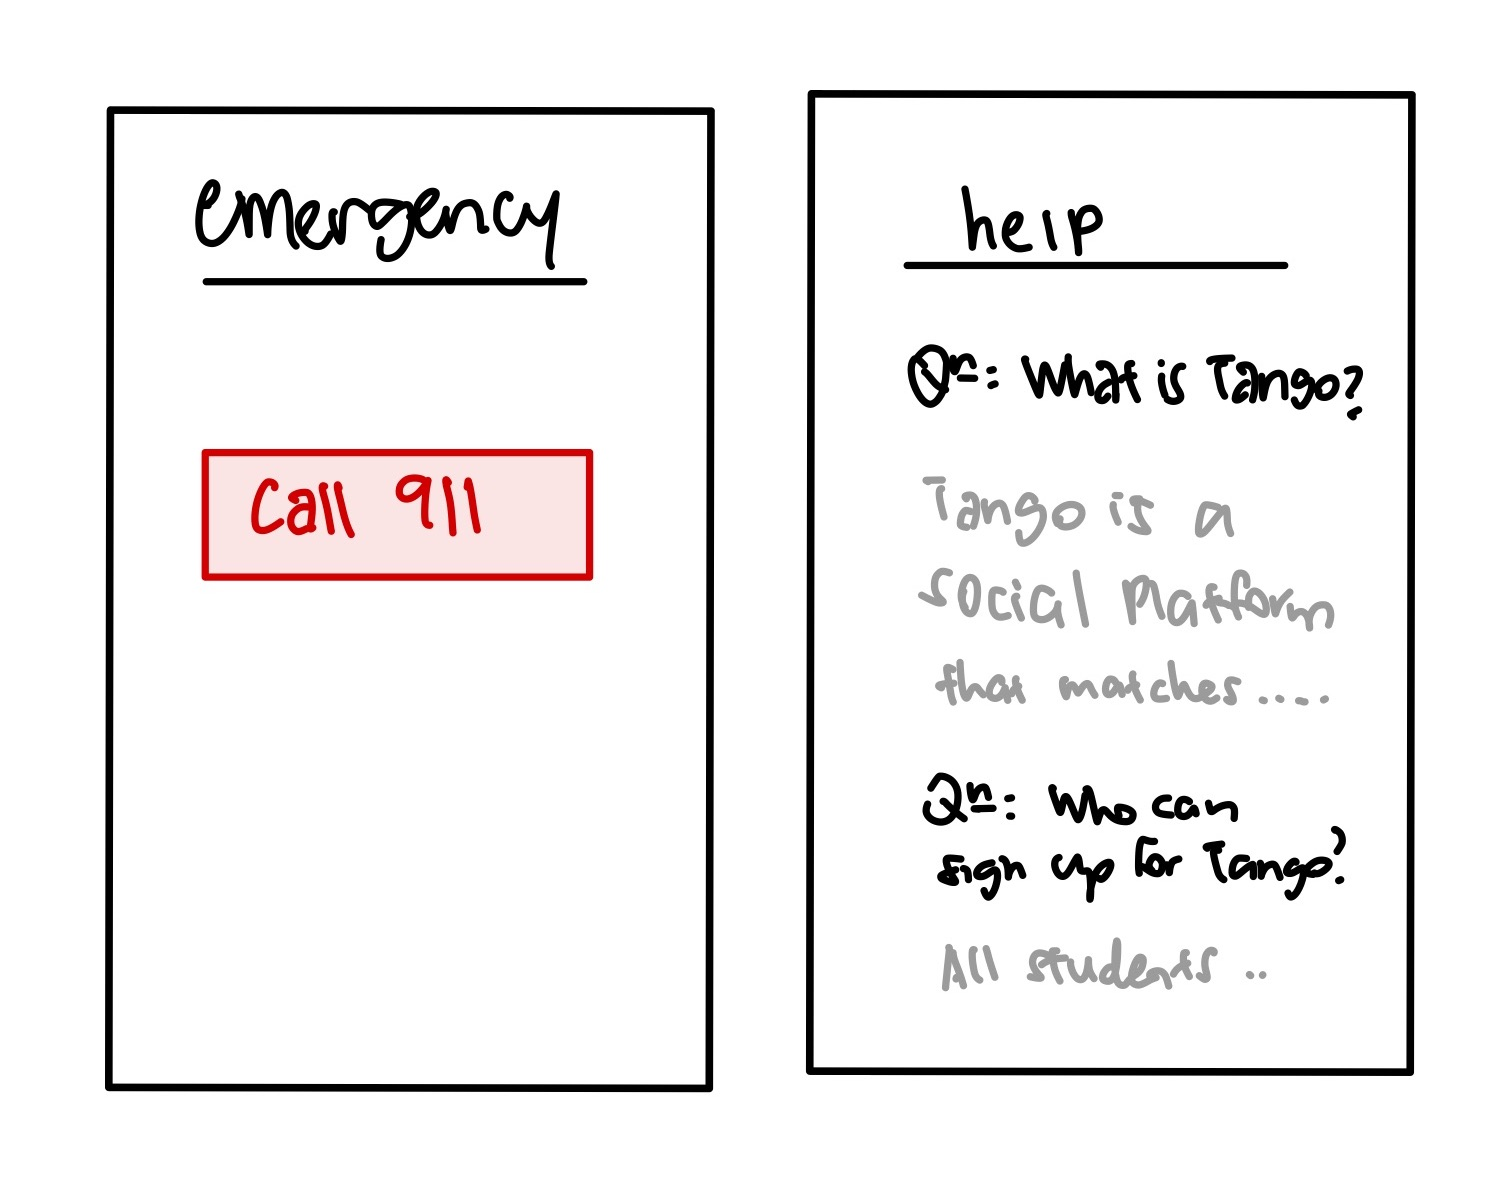 emergency
Call 911
help
Qn: What is Tango?
Tango is a
social Platform
that matches.....
Qn: Who can
sign up for Tango?
All students ..